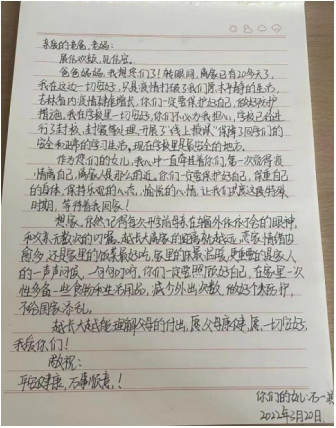 亲爱的爸爸、妈妈:
展信欢颜,见信安。
爸爸妈妈,我想你们了!转眼间,离家已有20多天了,
我在这边一切安好,只是疫情打破了我们原本平静的生活,
吉林省内疫情肆虐增长,你们一定要保护好自己,做好防护
措施。我在学校里一切安好,你们不必为我担心,学校已经进
行了封校,封寝等处理,开展了"线上授课"保障了同学们的
安全和正常的学习生活,现在学校里是最安全的地方。
作为你们的女儿,我心中一直牵挂着你们,第一次觉得疫
情离自己,离家人是那么的近,你们一定要保护好自己,保重自己
的身体,保持乐观的心态,愉悦的心情,让我们共度这段特殊
时期,等待着我回家!
想家,依然记得每次开学
和 无数次的叮嘱,越长大离家的距离就越远,恋家情绪
愈多,还是家里的饭菜最好吃,家里的床最温暖,更重要的是家人
的一声声问候、一句句叮咛,你们一定要照顾好自己,在家里一次
性多备一些食物和生活用品,减少外出次数,做好个人防护,
不给国家添乱。
越长大越能理解父母的付出,愿父母康健,愿一切安好,
我爱你们!
敬祝:
平安健康,万事顺意!
你们的女儿:石一
2022年3月20日